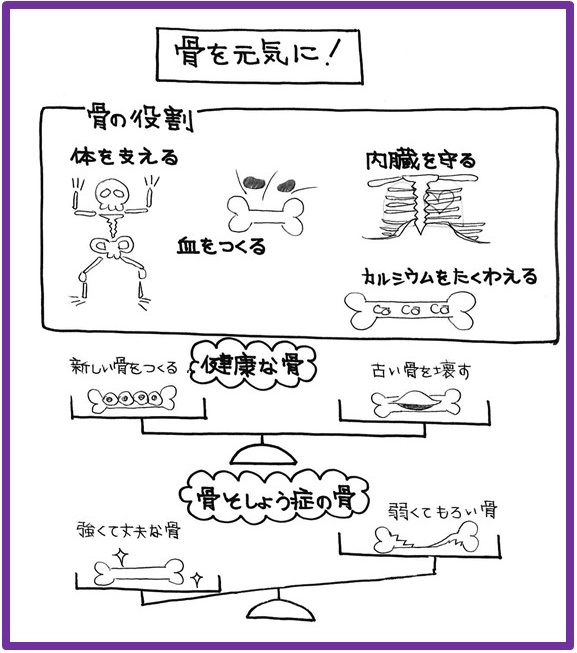 骨を元気に！
骨の役割
体を支える
血をつくる
内臓を守る
カルシウムをたくわえる
Ca Ca Ca
健康な骨
新しい骨をつくる
古い骨を壊す
骨そしょう症の骨
強くて丈夫な骨
弱くてもろい骨